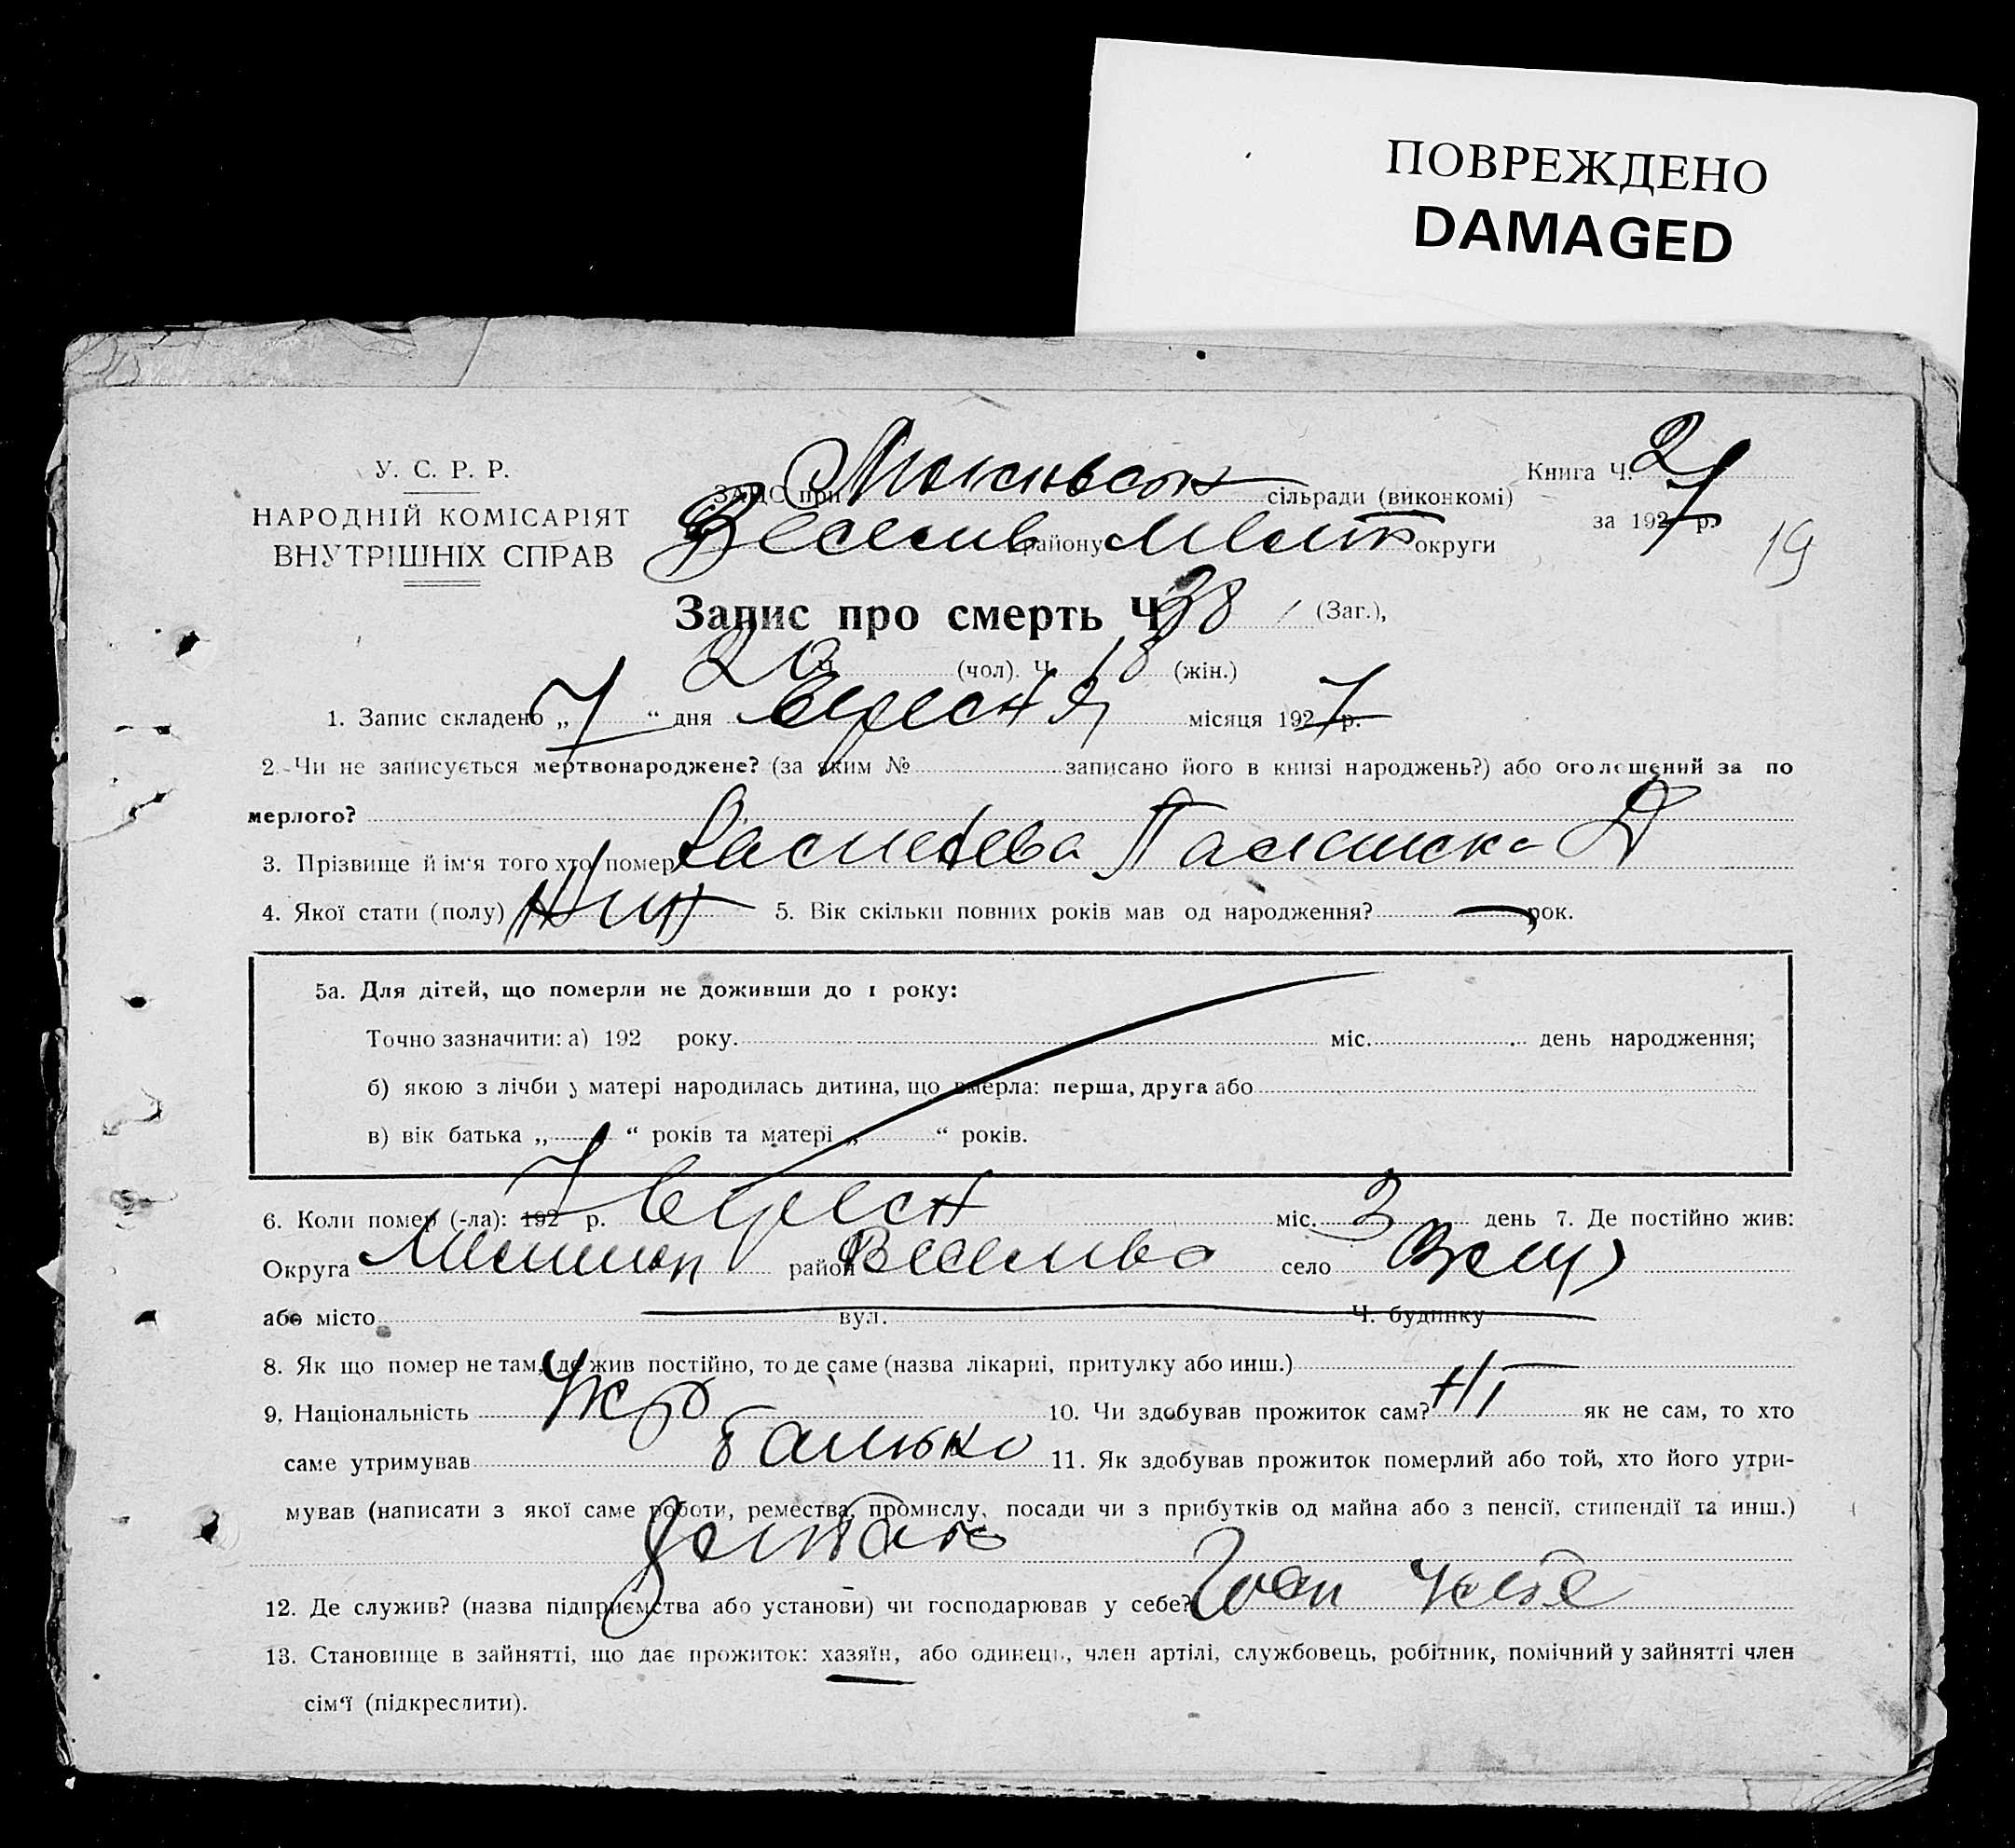 ПОВРЕЖДЕНО
DAMAGED
У. С. Р. Р.
НАРОДНІЙ КОМІСАРІЯТ
ВНУТРІШНІХ СПРАВ
ЗАЦС при сільради (виконкомі)
Веселів району Меліт округи
Книга Ч. 2
за 1927 р.
19
Запис про смерть Ч 38 (Заг.),
Ч 20 (чол). Ч 18 (жін.)
1. Запис складено „ 7 “ дня вересня місяця 1927 р.
2. Чи не записується мертвонароджене? (за яким № записано його в книзі народжень?) або оголошений за по
мерлого?
3. Прізвище й ім'я того хто помер
4. Якої стати (полу) Жин 5. Вік скільки повних років мав од народження? — рок.
5а. Для дітей, що померли не доживши до 1 року:
Точно зазначити: а) 192 року. міс. день народження;
б) якою з лічби у матері народилась дитина, що вмерла: перша, друга або
в) вік батька „ “ років та матері „ “ років.
6. Коли помер (-ла): 1927 р. Вересн міс. 3 день 7. Де постійно жив:
Округа район село
або місто вул. Ч. будинку
8. Як що помер не там, де жив постійно, то де саме (назва лікарні, притулку або инш.)
9, Національність Укр 10. Чи здобував прожиток сам? Ні як не сам, то хто
саме утримував батько 11. Як здобував прожиток померлий або той, хто його утри-
мував (написати з якої саме роботи, ремества, промислу, посади чи з прибутків од майна або з пенсії, стипендії та инш.)
12. Де служив? (назва підприємства або установи) чи господарював у себе?
13. Становище в зайнятті, що дає прожиток: хазяїн, або одинець, член артілі, службовець, робітник, помічний у зайнятті член
сім'ї (підкреслити).